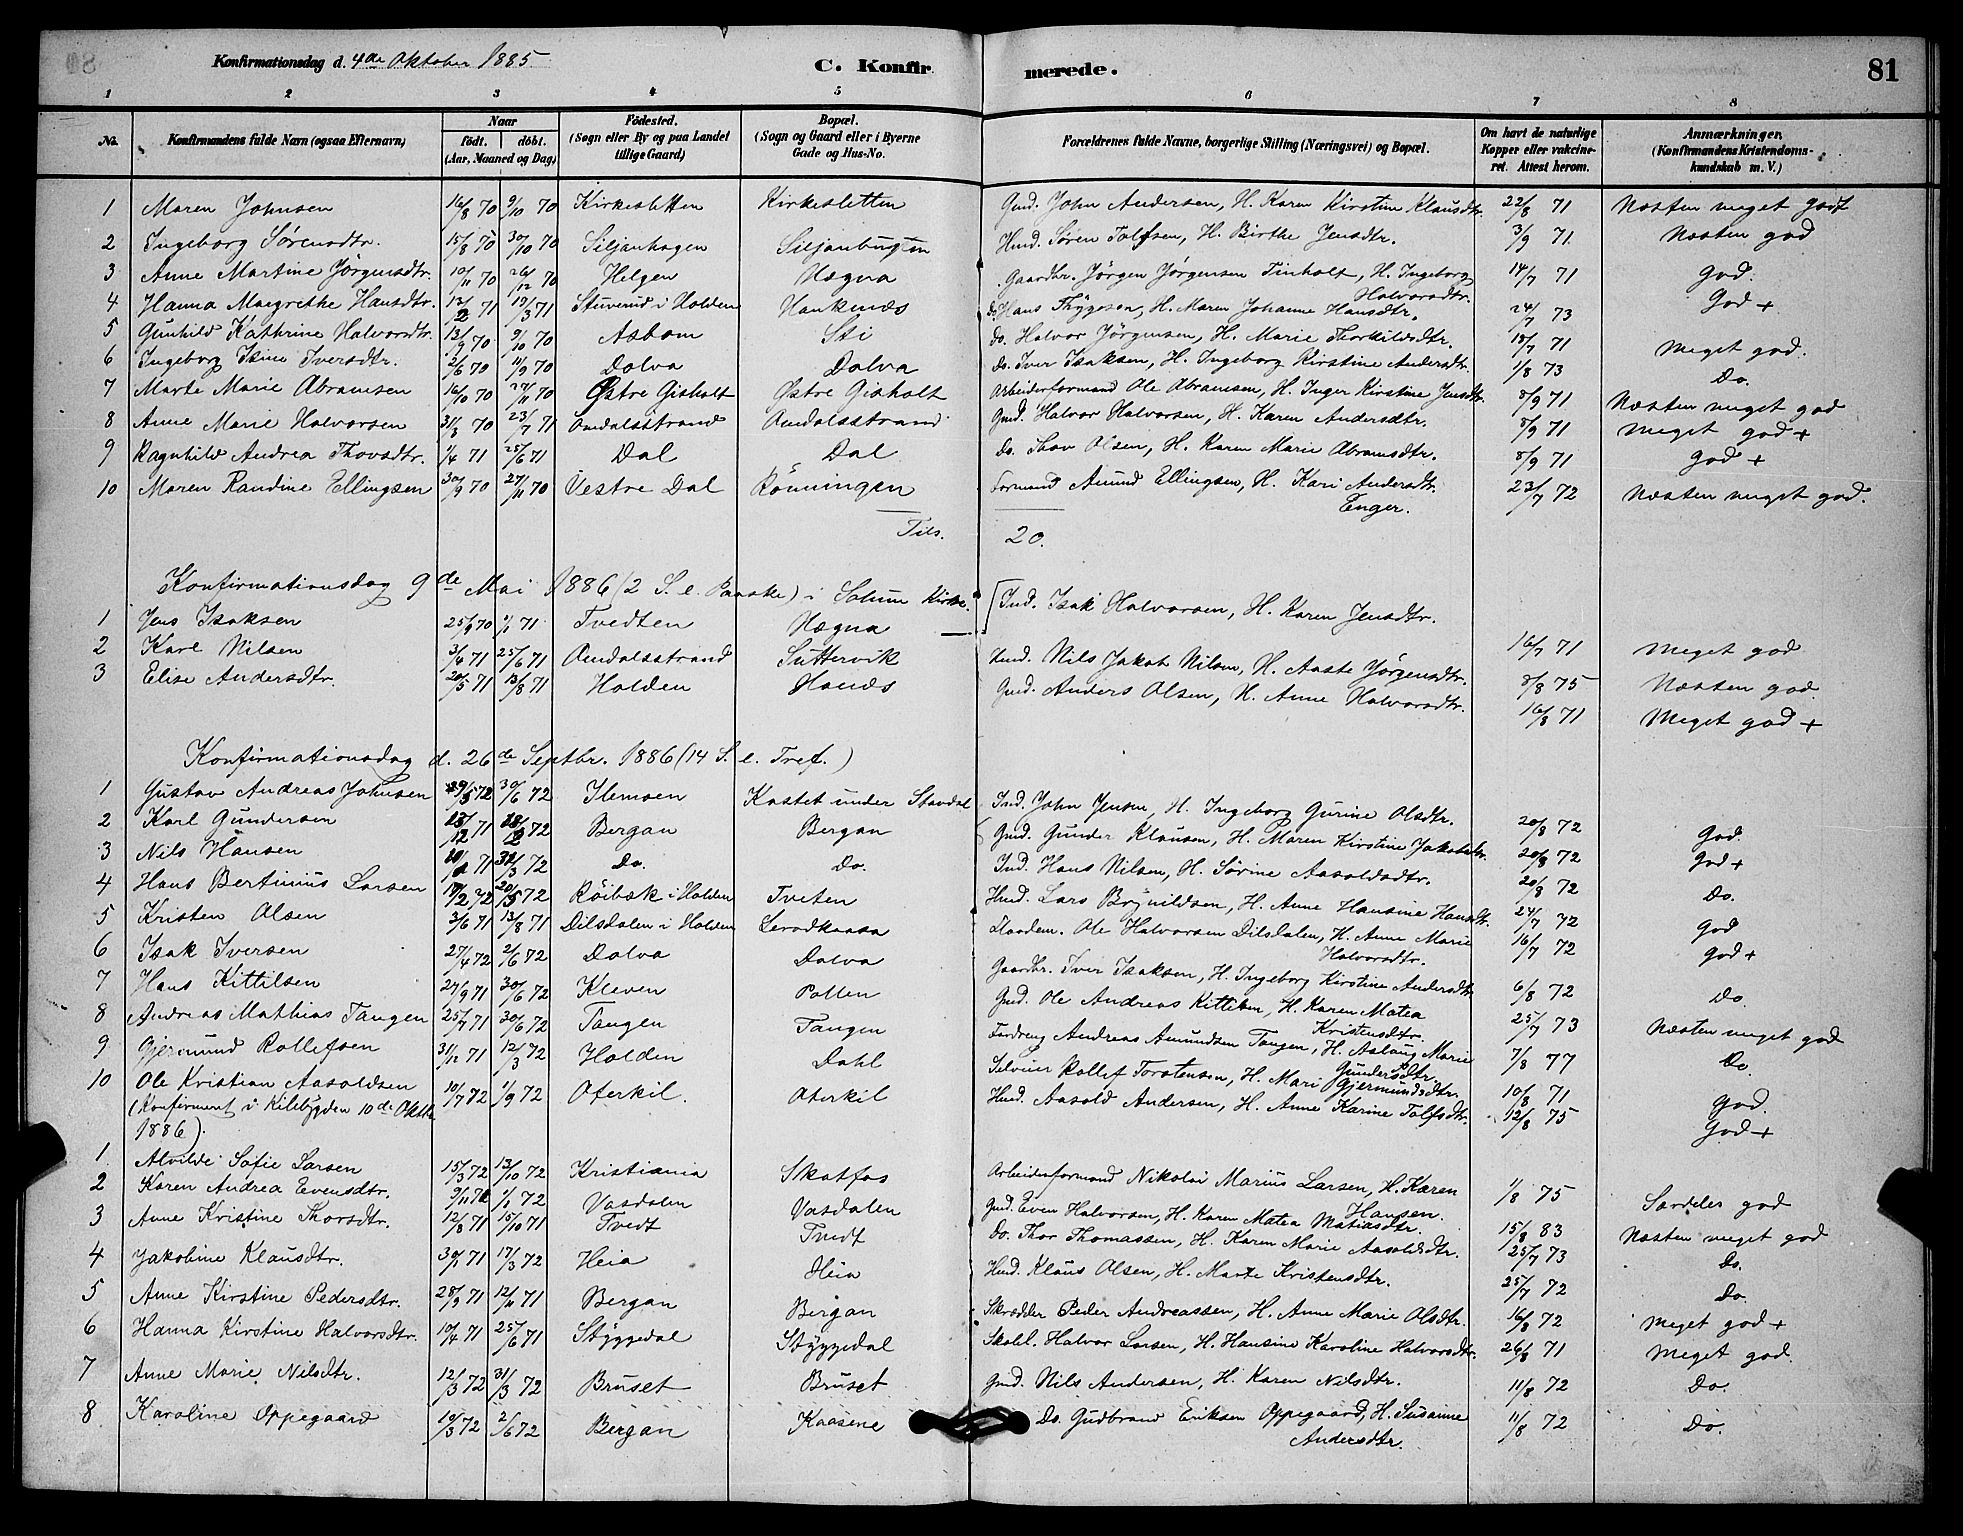 Konfirmationsdag d. 4de Oktober 1885 C. Konfirmerede. 81
1 2 3 4 5 6 7 8
No. Konfirmandens fulde Navn (ogsaa Efternavn) Naar født. døbt. (Aar, Maaned og Dag) Fødested. (Sogn eller By og paa Landet tillige Gaard) Bopæl. (Sogn og Gaard eller i Byerne Gade og Hus-No. Forældrenes fulde Navne, borgerlige Stilling (Næringsvei) og Bopæl. Om havt de naturlige Kopper eller vakcineret. Attest herom. Anmærkninger. (Konfirmandens Kristendomskundskab m. V.)
1 Maren Johnsen 16/8 70 9/10 70 Kirkesletten Kirkesletten Gmd. John Andersen, H. Karen Kirstine Klausdtr. 22/8 71 Næsten meget godt
2 Ingeborg Sørensdtr. 15/8 70 30/10 70 Siljanhagen Hmd. Søren Tolfsen, H. Birthe Jensdtr. 3/9 71 Næsten god
3 Anne Martine Jørgensdtr. 10/11 70 26/12 70 Helgen Hægna Gaardbr. Jørgen Jørgensen Tinholt, H. Ingeborg Halvorsdtr. 14/7 71 God.
4 Hanna Margrethe Hansdtr. 12/2 71 19/3 71 Stuverud i Holden Hankenæs do. Hans Thygesen, H. Maren Johanne Hansdtr. 24/7 73 God +
5 Gunhild Kathrine Halvordtr. 13/9 70 9/10 70 Asbom Sti do. Halvor Jørgensen, H. Marie Thorkildsdtr. 18/7 71 Meget god.
6 Ingeborg Isine Iversdtr. 2/6 70 11/9 70 Dolva Dolva do. Iver Isaksen, H. Ingeborg Kirstine Andersdtr. 1/8 73 Do.
7 Marte Marie Abramsen 16/10 70 27/11 70 Østre Gisholt Østre Gisholt Arbeiderformand Ole Abramsen, H. Inger Kirstine Jensdtr. 8/9 71 Næsten meget god
8 Anne Marie Halvorsen 31/8 70 23/7 71 Omdalsstrand Omdalsstrand Gmd. Halvor Halvorsen, H. Karen Andersdtr. 8/9 71 Meget god +
9 Ragnhild Andrea Thovsdtr. 1/4 71 25/6 71 Dal Dal do. Thov Olsen, H. Karen Marie Abramsdtr. 8/9 71 God +
10 Maren Randine Ellingsen 30/9 70 27/11 70 Vestre Dal Rönningen Formand Amund Ellingsen, H. Kari Andersdtr. Enger. 23/7 72 Næsten meget god.
Tils. 20.
Konfirmationsdag 9de Mai 1886 (2 S. e. Paaske) i Solum Kirke.
1 Jens Isaksen 25/9 70 1/1 71 Tvedten Hægna Ind. Isak Halvorsen, H. Karen Jensdtr. 16/7 71 Meget god
2 Karl Nilsen 3/4 71 25/6 71 Omdalsstrand Suttervik Hmd. Nils Jakob Nilsen, H. Aaste Jørgensdtr. 8/8 75 Næsten god.
3 Elise Andersdtr. 20/5 71 13/8 71 Holden Gmd. Anders Olsen, H. Anne Halvorsdtr. 16/8 71 Meget god +
Konfirmationsdag d. 26de Septbr. 1886 (14 S. e. Tref.)
1 Gustav Andreas Johnsen 29/5 72 30/6 72 Ilemoen Kastet under Stavdal Ind. John Jensen, H. Ingeborg Gurine Olsdtr. 20/8 72 God.
2 Karl Gundersen 13/12 71 18/2 72 Bergan Bergan Gmd. Gunder Klausen, H. Maren Kirstine Jakobsdtr. 20/8 72 God +
3 Nils Hansen 71 31/3 72 Do. Do. Ind. Hans Nilsen, H. Sørine Aasoldsdtr. 20/8 72 Do.
4 Hans Bertinius Larsen 17/2 72 20/5 72 Röibæk i Holden Tveten Hmd. Lars Brynildsen, H. Anne Hansine Hansdtr. 24/7 72 God
5 Kristen Olsen 3/6 71 13/8 71 Dilsdalen i Holden Lerodkaasa Ole Halvorsen Dilsdalen, H. Anne Marie Halvorsdtr. 16/7 72 God +
6 Isak Iversen 27/4 72 2/6 72 Dolva Dolva Gaardbr. Iver Isaksen, H. Ingeborg Kirstine Andersdtr. 6/8 72 Do.
7 Hans Kittilsen 27/9 71 30/6 72 Kleven Pollen Gmd. Ole Andreas Kittilsen, H. Karen Matea Kristensdtr. 25/7 73 Næsten meget god
8 Andreas Mathias Tangen 25/7 71 30/6 72 Tangen Tangen Andreas Amundsen Tangen, H. Aslaug Marie Gundersdtr. 7/8 77 Do.
9 Gjermund Rollefsen 31/12 71 12/3 72 Holden Dahl Selveier Rollef Torstensen, H. Mari Gjermundsdtr. 10/8 71 God.
10 Ole Kristian Aasoldsen 10/7 72 1/9 72 Oterkil. Oterkil Hmd. Aasold Andersen, H. Anne Karine Tolfsdtr. 12/8 75 God +
(Konfirmert i Kilebygden 10de Oktbr
1886).
1 Alvilde Sofie Larsen 15/3 72 13/10 72 Kristiania Skotfos Arbeiderformand Nikolai Marius Larsen, H. Karen Hansen. 1/8 75 Særdeles god
2 Karen Andrea Evensdtr. 9/11 71 1/1 72 Vasdalen Vasdalen Gmd. Even Halvorsen, H. Karen Matea Matiasdtr. 15/8 83 Næsten meget god
3 Anne Kristine Thorsdtr. 12/8 71 15/10 71 Tvedt Tvedt Do. Thor Thomassen, H. Karen Marie Aasoldsdtr. 25/7 73 Do.
4 Jakobine Klausdtr. 30/1 71 17/3 72 Heia Heia Hmd. Klaus Olsen, H. Marte Kristensdtr. 25/7 72 Do.
5 Anne Kirstine Pedersdtr. 28/9 71 12/11 71 Bergan Bergan Skrædder Peder Andreassen, H. Anne Marie Olsdtr. 16/8 72 Meget god +
6 Hanna Kirstine Halvorsdtr. 10/4 71 25/6 71 Styggedal Styggedal Skoll. Halvor Larsen, H. Hansine Karoline Halvorsdtr. 26/8 71 Meget god.
7 Anne Marie Nilsdtr. 12/3 72 31/3 72 Bruset Bruset Gmd. Nils Andersen, H. Karen Nilsdtr. 11/8 72 Do.
8 Karoline Oppegaard 10/3 72 2/6 72 Bergan Kaasene Do. Gudbrand Eriksen Oppegaard, H. Susanne Andersdtr. 11/8 72 Do.